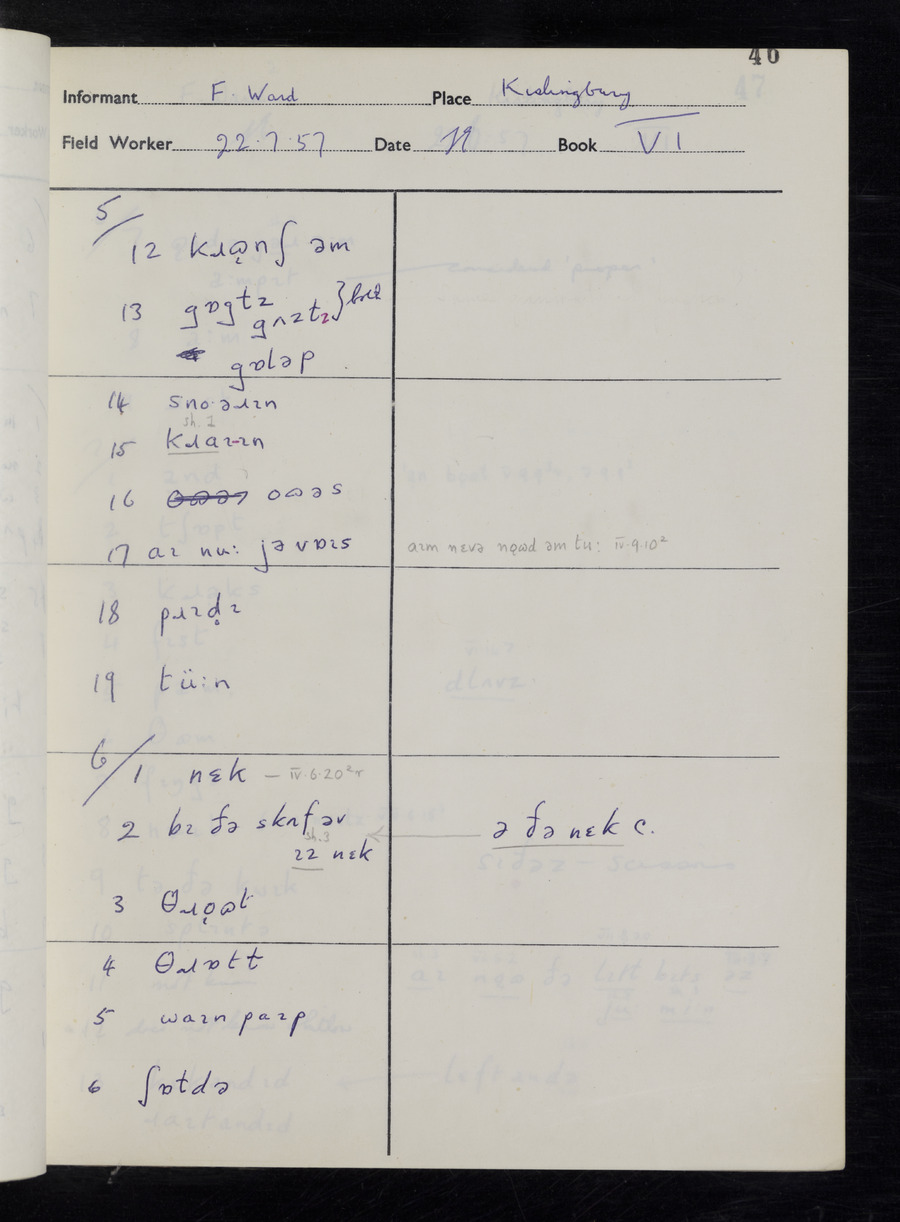 40
Informant F. Ward Place Kislingbury
Field Worker 22.7.57 Date Book VI
5/
12 kɹɑ̨nʃ əm
13 gɒgtɪ
gʌztɪ
gɒləp
14 snɔ·əɹɪn
sh. I
15 kɹaɪɪn
16 oɷəs
17 aɪ nu: jə vɒɪs aɪm nɛvə nǫɷd əm tu: IV.9.10²
18 pɹɪd̥ɪ
19 tü:n
6/
1 nɛk — IV.6.20²
2 bɪ ðə skɹʌf əv ə ðə nɛk c.
sh.3
ɪz nɛk
3 θɹǫɷt
4 θɹɒtt
5 waɪnpaɪp
6 ʃɒtdə